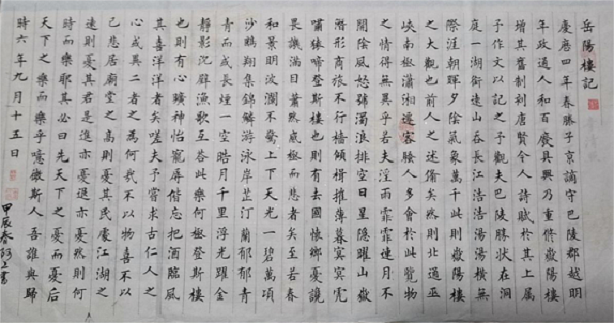 岳陽樓記
慶曆四年春滕子京謫守巴陵郡越明
年政通人和百廢具興乃重脩嶽陽樓
增其舊制刻唐賢今人詩賦於其上屬
予作文以記之予觀夫巴陵勝狀在洞
庭一湖銜遠山吞長江浩浩湯湯橫無
際涯朝暉夕陰氣象萬千此則嶽陽樓
之大觀也前人之述備矣然則北通巫
峽南極瀟湘遷客騷人多會於此覽物
之情得無異乎若夫淫雨霏霏連月不
開陰風怒號濁浪排空日星隱曜山嶽
潛形商旅不行檣傾楫摧薄暮冥冥虎
嘯猿啼登斯樓也則有去國懷鄉憂讒
畏譏滿目蕭然感極而悲者矣至若春
和景明波瀾不驚上下天光一碧萬頃
沙鷗翔集錦鱗游泳岸芷汀蘭郁郁青
青而或長煙一空皓月千里浮光躍金
靜影沉璧漁歌互答此樂何極登斯樓
也則有心曠神怡寵辱偕忘把酒臨風
其喜洋洋者矣嗟夫予嘗求古仁人之
心或異二者之為何哉不以物喜不以
己悲居廟堂之高則憂其民處江湖之
遠則憂其君是進亦憂退亦憂然則何
時而樂耶其必曰先天下之憂而憂后
天下之樂而樂乎噫微斯人吾誰與歸
時六年九月十五日
甲辰春